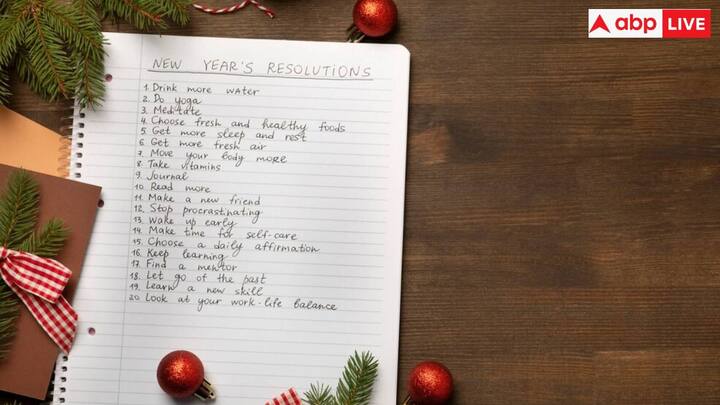 abp LIVE
NEW YEAR'S RESOLUTIONS
1. Drink more water
2. Do yoga
3. Meditate
4. Choose fresh and healthy foods
5. Get more sleep and rest
6. Get more fresh air
7. Move your body more
8. Take vitamins
9. Journal
10. Read more
11. Make a new friend
12. Stop procrastinating
13. Wake up early
14. Make time for self-care
15. Choose a daily affirmation
16. Keep learning
17. Find a mentor
18. Let go of the past
19. Learn a new skill
20. Look at your work-life balance